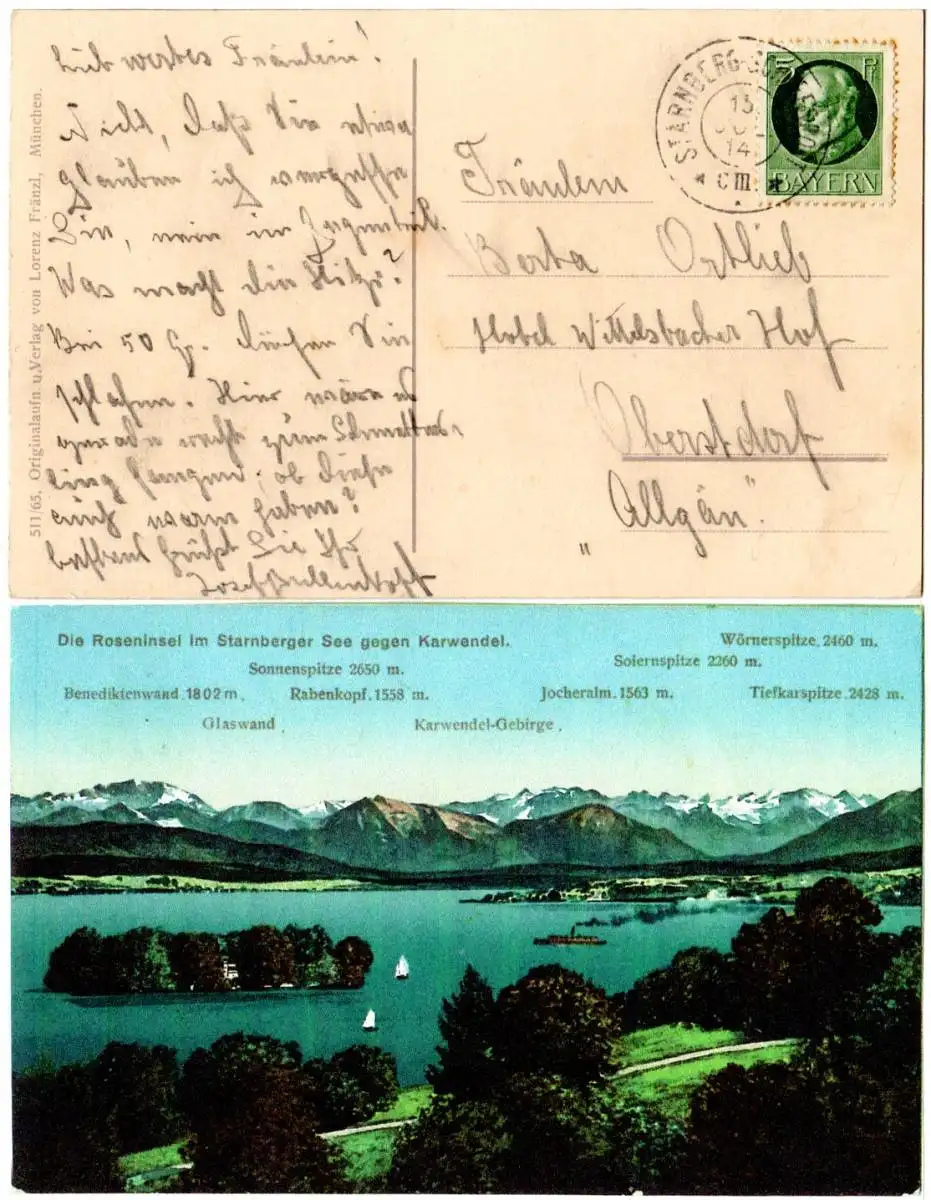 511/65. Originalaufn. u. Verlag von Lorenz Fränzl, München.
wertes Fräulein!
Nicht, daß Sie etwa
glauben ich vergesse
Sie, nein im Gegenteil.
Was macht die Hitze?
Bei 50 Gr. dürfen Sie
schlafen. Hier wäre es
gerade recht zum Schmetter-
ling fangen; ob diese
auch warm haben?
bestens grüßt Sie Ihr
Josef
STARNBERG
13.
14.
* C III. *
5 Pf
BAYERN
Fräulein
Berta Ortlieb
Hotel Wittelsbacher Hof
Oberstdorf
"Allgäu".
Die Roseninsel im Starnberger See gegen Karwendel.
Wörnerspitze. 2460 m.
Sonnenspitze 2650 m.
Soiernspitze 2260 m.
Benediktenwand. 1802 m.
Rabenkopf. 1558 m.
Jocheralm. 1563 m.
Tiefkarspitze. 2428 m.
Glaswand
Karwendel-Gebirge.